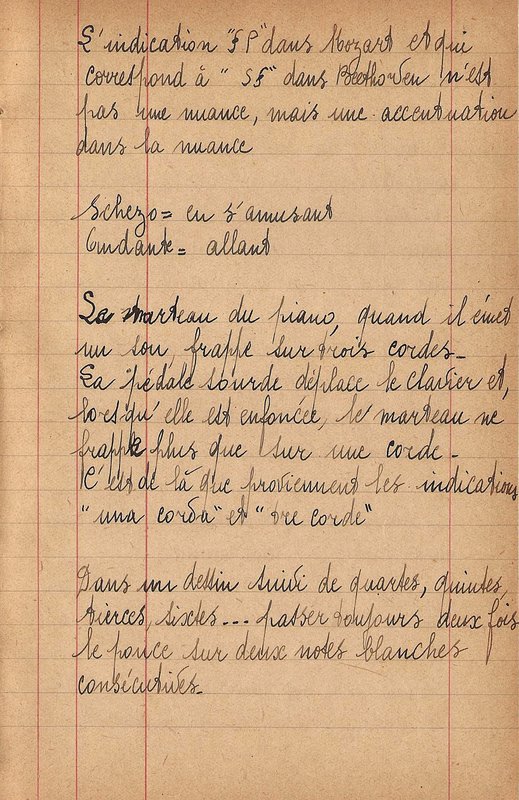 L'indication "FP" dans Mozart et qui
correspond à "SF" dans Beethoven n'est
pas une nuance, mais une accentuation
dans la nuance
Schezo = en s'amusant
Andante = allant
Le marteau du piano, quand il émet
un son, frappe sur trois cordes_
La pédale sourde déplace le clavier et,
lorsqu'elle est enfoncée, le marteau ne
frappe plus que sur une corde_
C'est de là que proviennent les indications
"una corda" et "tre corde"
Dans un dessin suivi de quartes, quintes,
tierces, sixtes... passer toujours deux fois
le pouce sur deux notes blanches
consécutives_